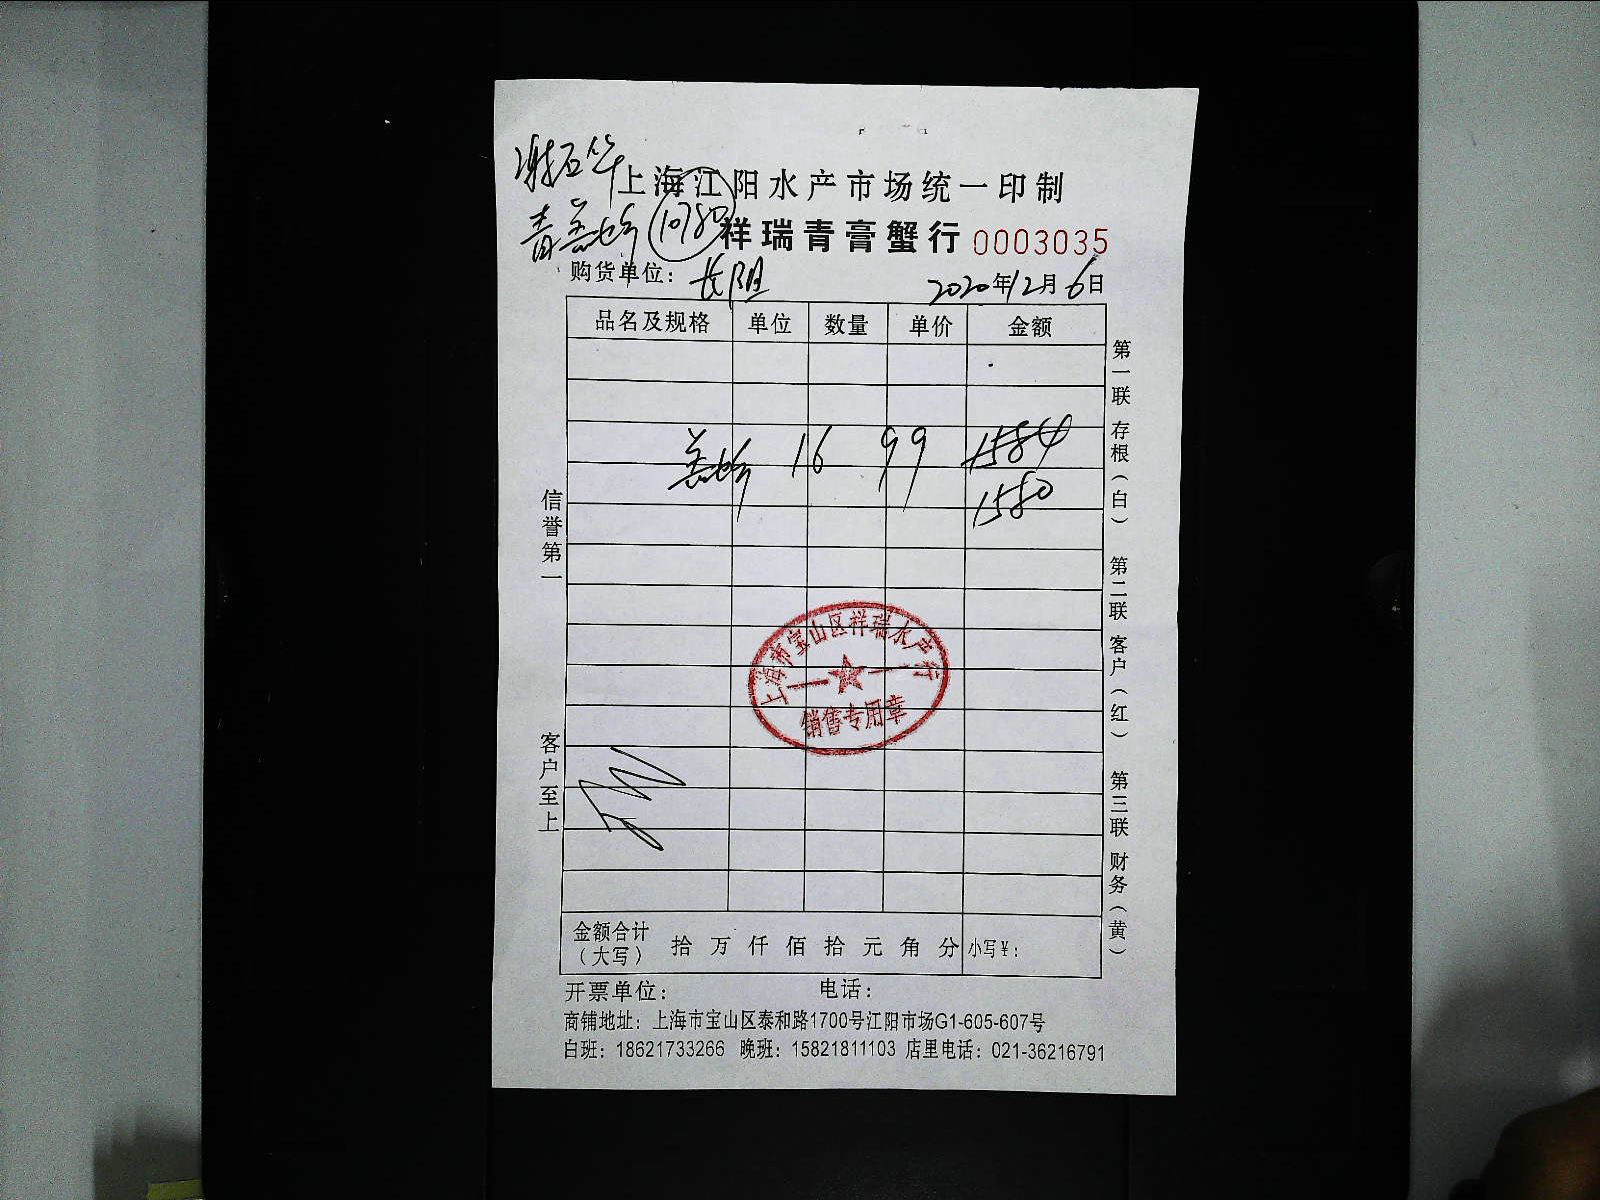 谢石华
上海江阳水产市场统一印制
青 10780 祥瑞青膏蟹行 0003035
购货单位：长阳 2020年12月6日
品名及规格 单位 数量 单价 金额
16 99 1584
1580
信誉第一
客户至上
第一联 存根（白） 第二联 客户（红） 第三联 财务（黄）
上海市宝山区祥瑞水产行
销售专用章
金额合计（大写） 拾 万 仟 佰 拾 元 角 分 小写￥：
开票单位： 电话：
商铺地址：上海市宝山区泰和路1700号江阳市场G1-605-607号
白班：18621733266 晚班：15821811103 店里电话：021-36216791